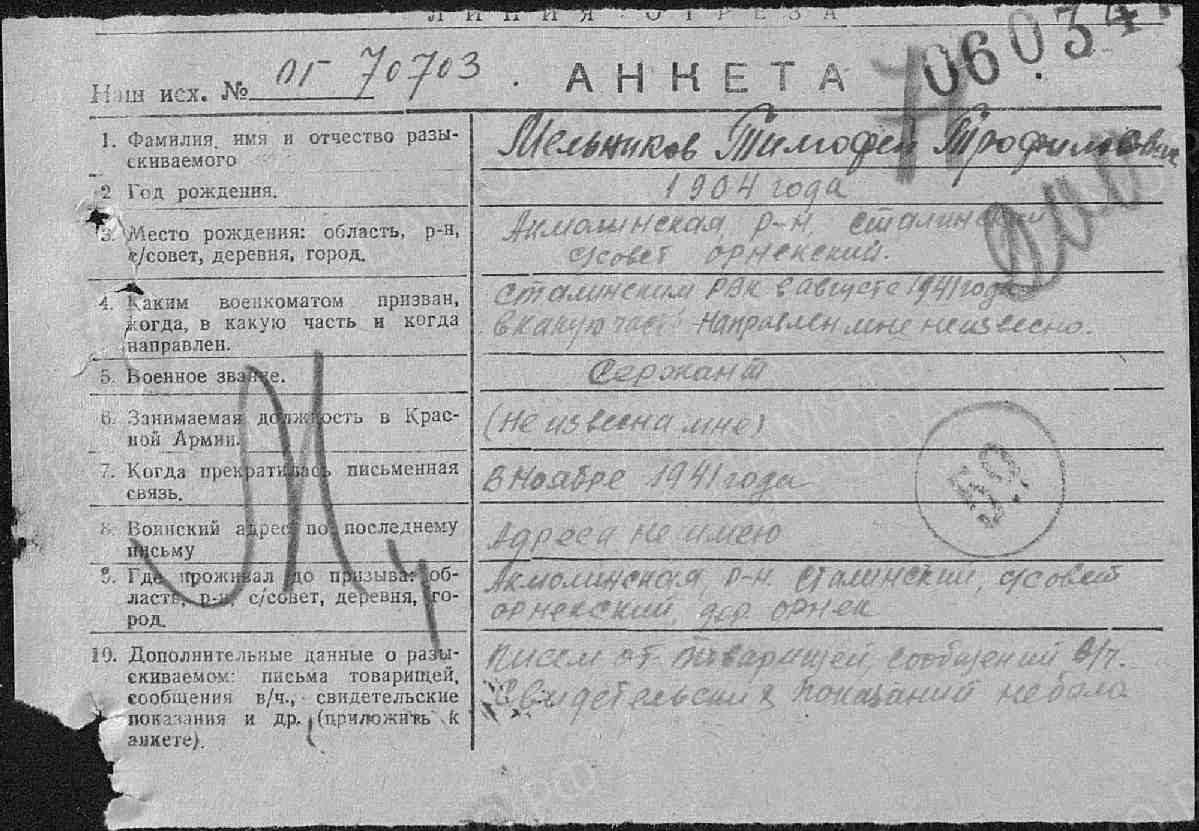 ЛИНИЯ ОТРЕЗА
Наш исх. № ОГ 70703 АНКЕТА 06034
1. Фамилия, имя и отчество разы-
скиваемого
Мельников Тимофей Трофимович
2 Год рождения.
1904 года
3. Место рождения: область, р-н,
с/совет, деревня, город.
Акмолинская, р-н, сталинский
с/совет орнекский.
4. Каким военкоматом призван,
когда, в какую часть и когда
направлен.
сталинским РВК в августе 1941 года
в какую часть направлен мне неизвесно.
5. Военное звание.
Сержант
6. Занимаемая должность в Крас-
ной Армии.
(Не извесна мне)
7. Когда прекратилась письменная
связь.
в Ноябре 1941 года
8. Воинский адрес по последнему
письму
Адреса не имею
9. Где проживал до призыва: об-
ласть, р-н, с/совет, деревня, го-
род.
Акмолинская, р-н. сталинский, с/совет
орнекский, дер. орнек
10. Дополнительные данные о разы-
скиваемом: письма товарищей,
сообщения в/ч., свидетельские
показания и др. (приложить к
анкете).
писем от товарищей, сообщений в/ч.
свидетельских показаний не бало
59